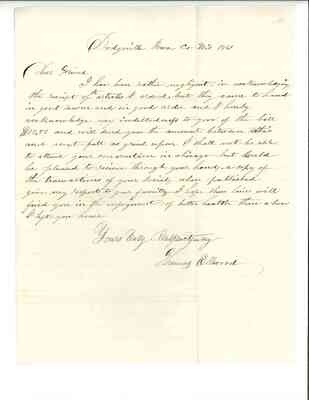 Dodgeville Iowa Co. Wis 1861
Dear Friend,
I have been rather negligent in acknowledging
the receipt of articles I ordered, but they came to hand
in good season and in good order and I hereby
acknowledge my indebtedness to you of the bill
and will send you the amount between this
and next fall as agreed upon I shall not be able
to attend your convention in Chicago but should
be pleased to receive through your hands a copy of
the transactions of your Society when published
give my respects to your family I hope these lines will
find you in the enjoyment of better health than when
I left you hence
Yours Very Respectfully
Thomas